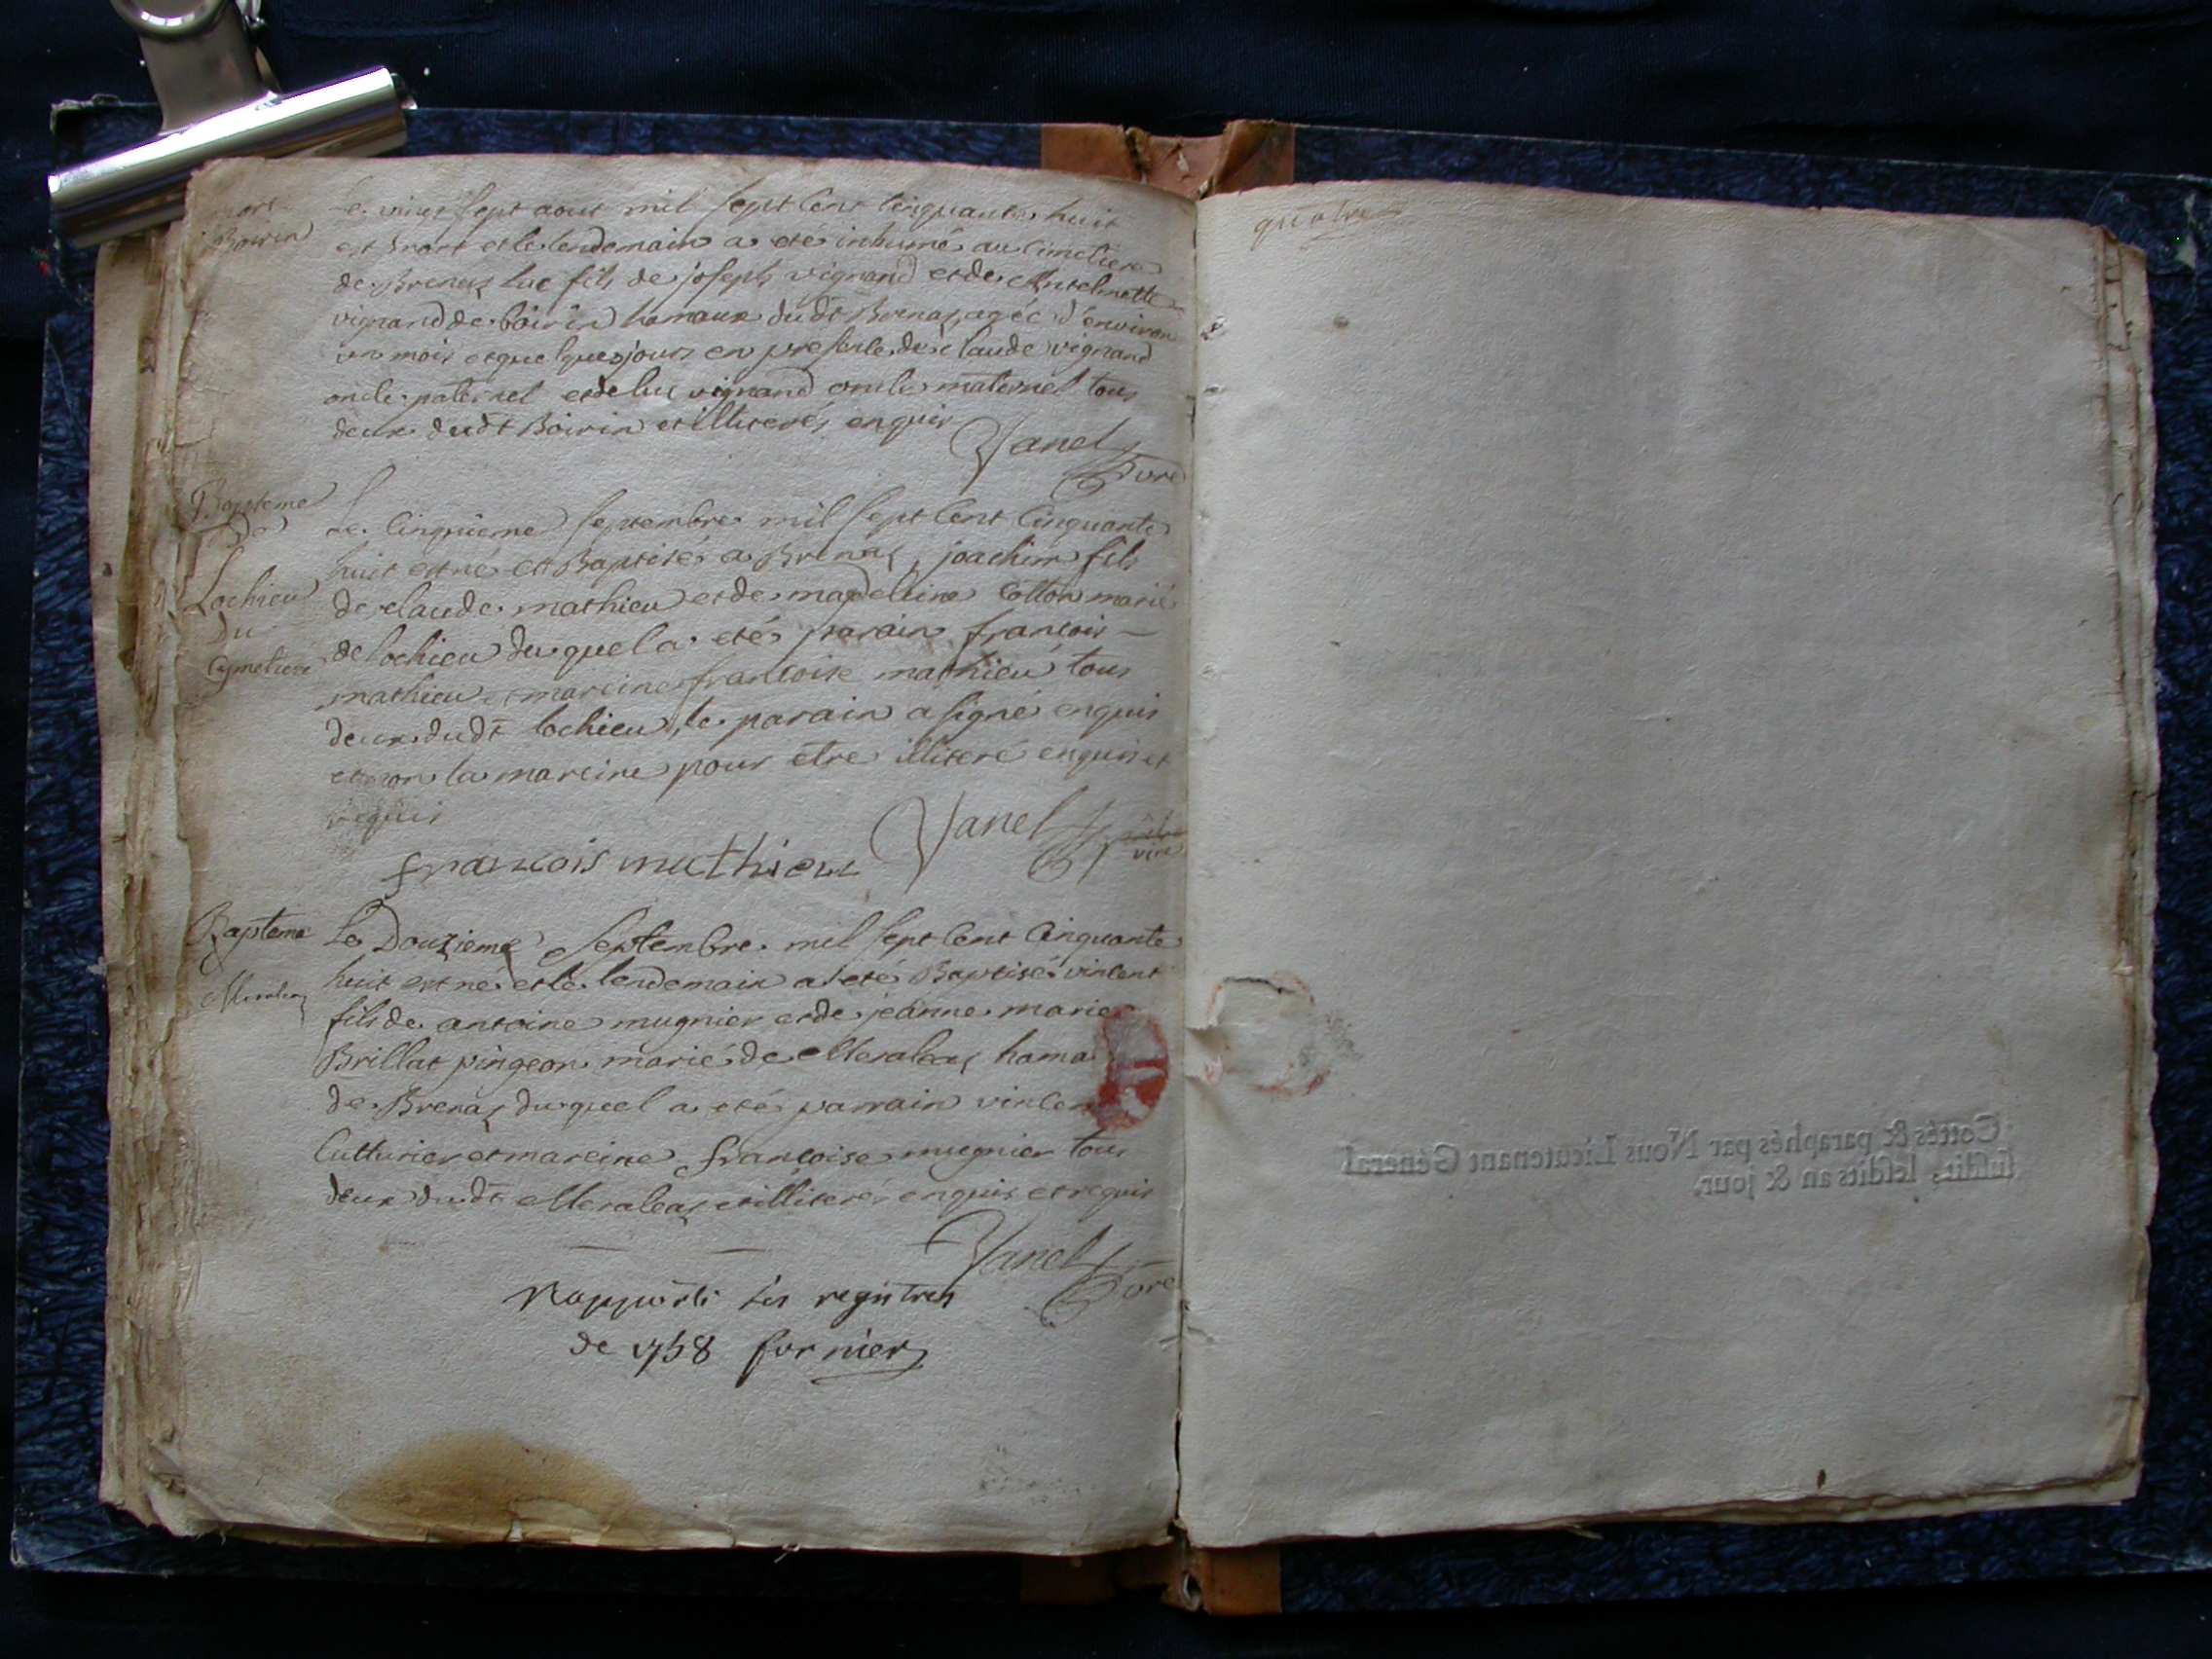 mort
Boirin
Le vingt sept aout mil sept cent cinquante huit
est mort et le lendemain a eté inhumé au cimetiere
de Brenaz luc fils de joseph vignand et de Anselmette
vignand de boirin hamaux dudt Brenaz, agéé d'environ
un mois et quelques jours en presence de claude vignand
oncle paternel et de luc vignand oncle maternel tous
deux dudt Boirin et illiterés enquis
Vanel
Curé
Bapteme
de
Lochieu
du
Cymetiere
Le Cinquieme septembre mil sept cent Cinquante
huit est né et Baptisé a Brenaz, joachim fils
de claude mathieu et de magdeleine Cotton marié
de lochieu du quel a eté parain francois
mathieu et mareine francoise mathieu tous
deux dudt lochieu, le parain a signé enquis
et non la mareine pour etre illiteré enquis et
requis
francois mathieu
Vanel
Bapteme
Meraleaz
Le Douzieme septembre mil sept cent Cinquante
huit est né et le lendemain a eté Baptisé vincent
fils de antoine mugnier et de jeanne marie
Brillat pingeon marié de Meraleaz hama
de Brenaz du quel a eté parrain vincent
Cutturier et mareine francoise mugnier tous
deux dudt Meraleaz et illiterés enquis et requis
Vanel
Curé
Rapporté les registres
de 1758 fornier
quatre
Cottés & paraphés par Nous Lieutenant Général
susdit, lesdits an & jour.